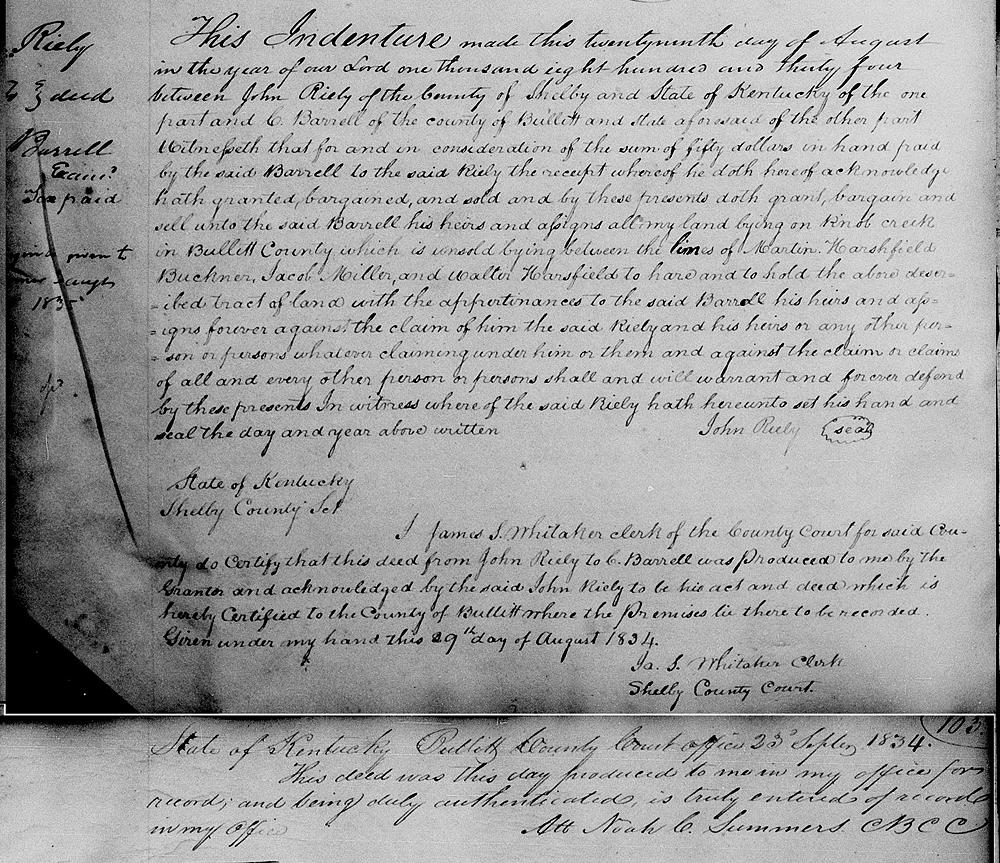 Riely
to } deed
Barrell
Exam.d
Tax paid
183
This Indenture made this twentyninth day of August
in the year of our Lord one thousand eight hundred and thirty four
between John Riely of the County of Shelby and State of Kentucky of the one
part and C. Barrell of the county of Bullitt and state aforesaid of the other part
Witnesseth that for and in consideration of the sum of fifty dollars in hand paid
by the said Barrell to the said Riely the receipt whereof he doth hereof acknowledge
hath granted, bargained, and sold and by these presents doth grant, bargain and
sell unto the said Barrell his heirs and assigns all my land lying on Knob creek
in Bullitt County which is unsold lying between the lines of Martin. Harshfield
Buckner, Jacob Miller, and Walter Harsfield to have and to hold the above descr=
=ibed tract of land with the appertinances to the said Barrell his heirs and ass=
=igns forever against the claim of him the said Riely and his heirs or any other per=
=son or persons whatever claiming under him or them and against the claim or claims
of all and every other person or persons shall and will warrant and forever defend
by these presents In witness where of the said Riely hath hereunto set his hand and
seal the day and year above written John Riely seal
State of Kentucky
Shelby County Sct
I James S. Whitaker clerk of the County Court for said Cou=
nty do Certify that this deed from John Riely to C. Barrell was Produced to me by the
Grantor and acknowledged by the said John Riely to be his act and deed which is
hereby Certified to the County of Bullitt where the Premises lie there to be recorded.
Given under my hand this 29th day of August 1834.
Ja. S. Whitaker Clerk
Shelby County Court.
103.
State of Kentucky Bullitt County Court office 23d Septer 1834.
This deed was this day produced to me in my office for
record; and being duly authenticated, is truly entered of record
in my office Att Noah C. Summers CBCC